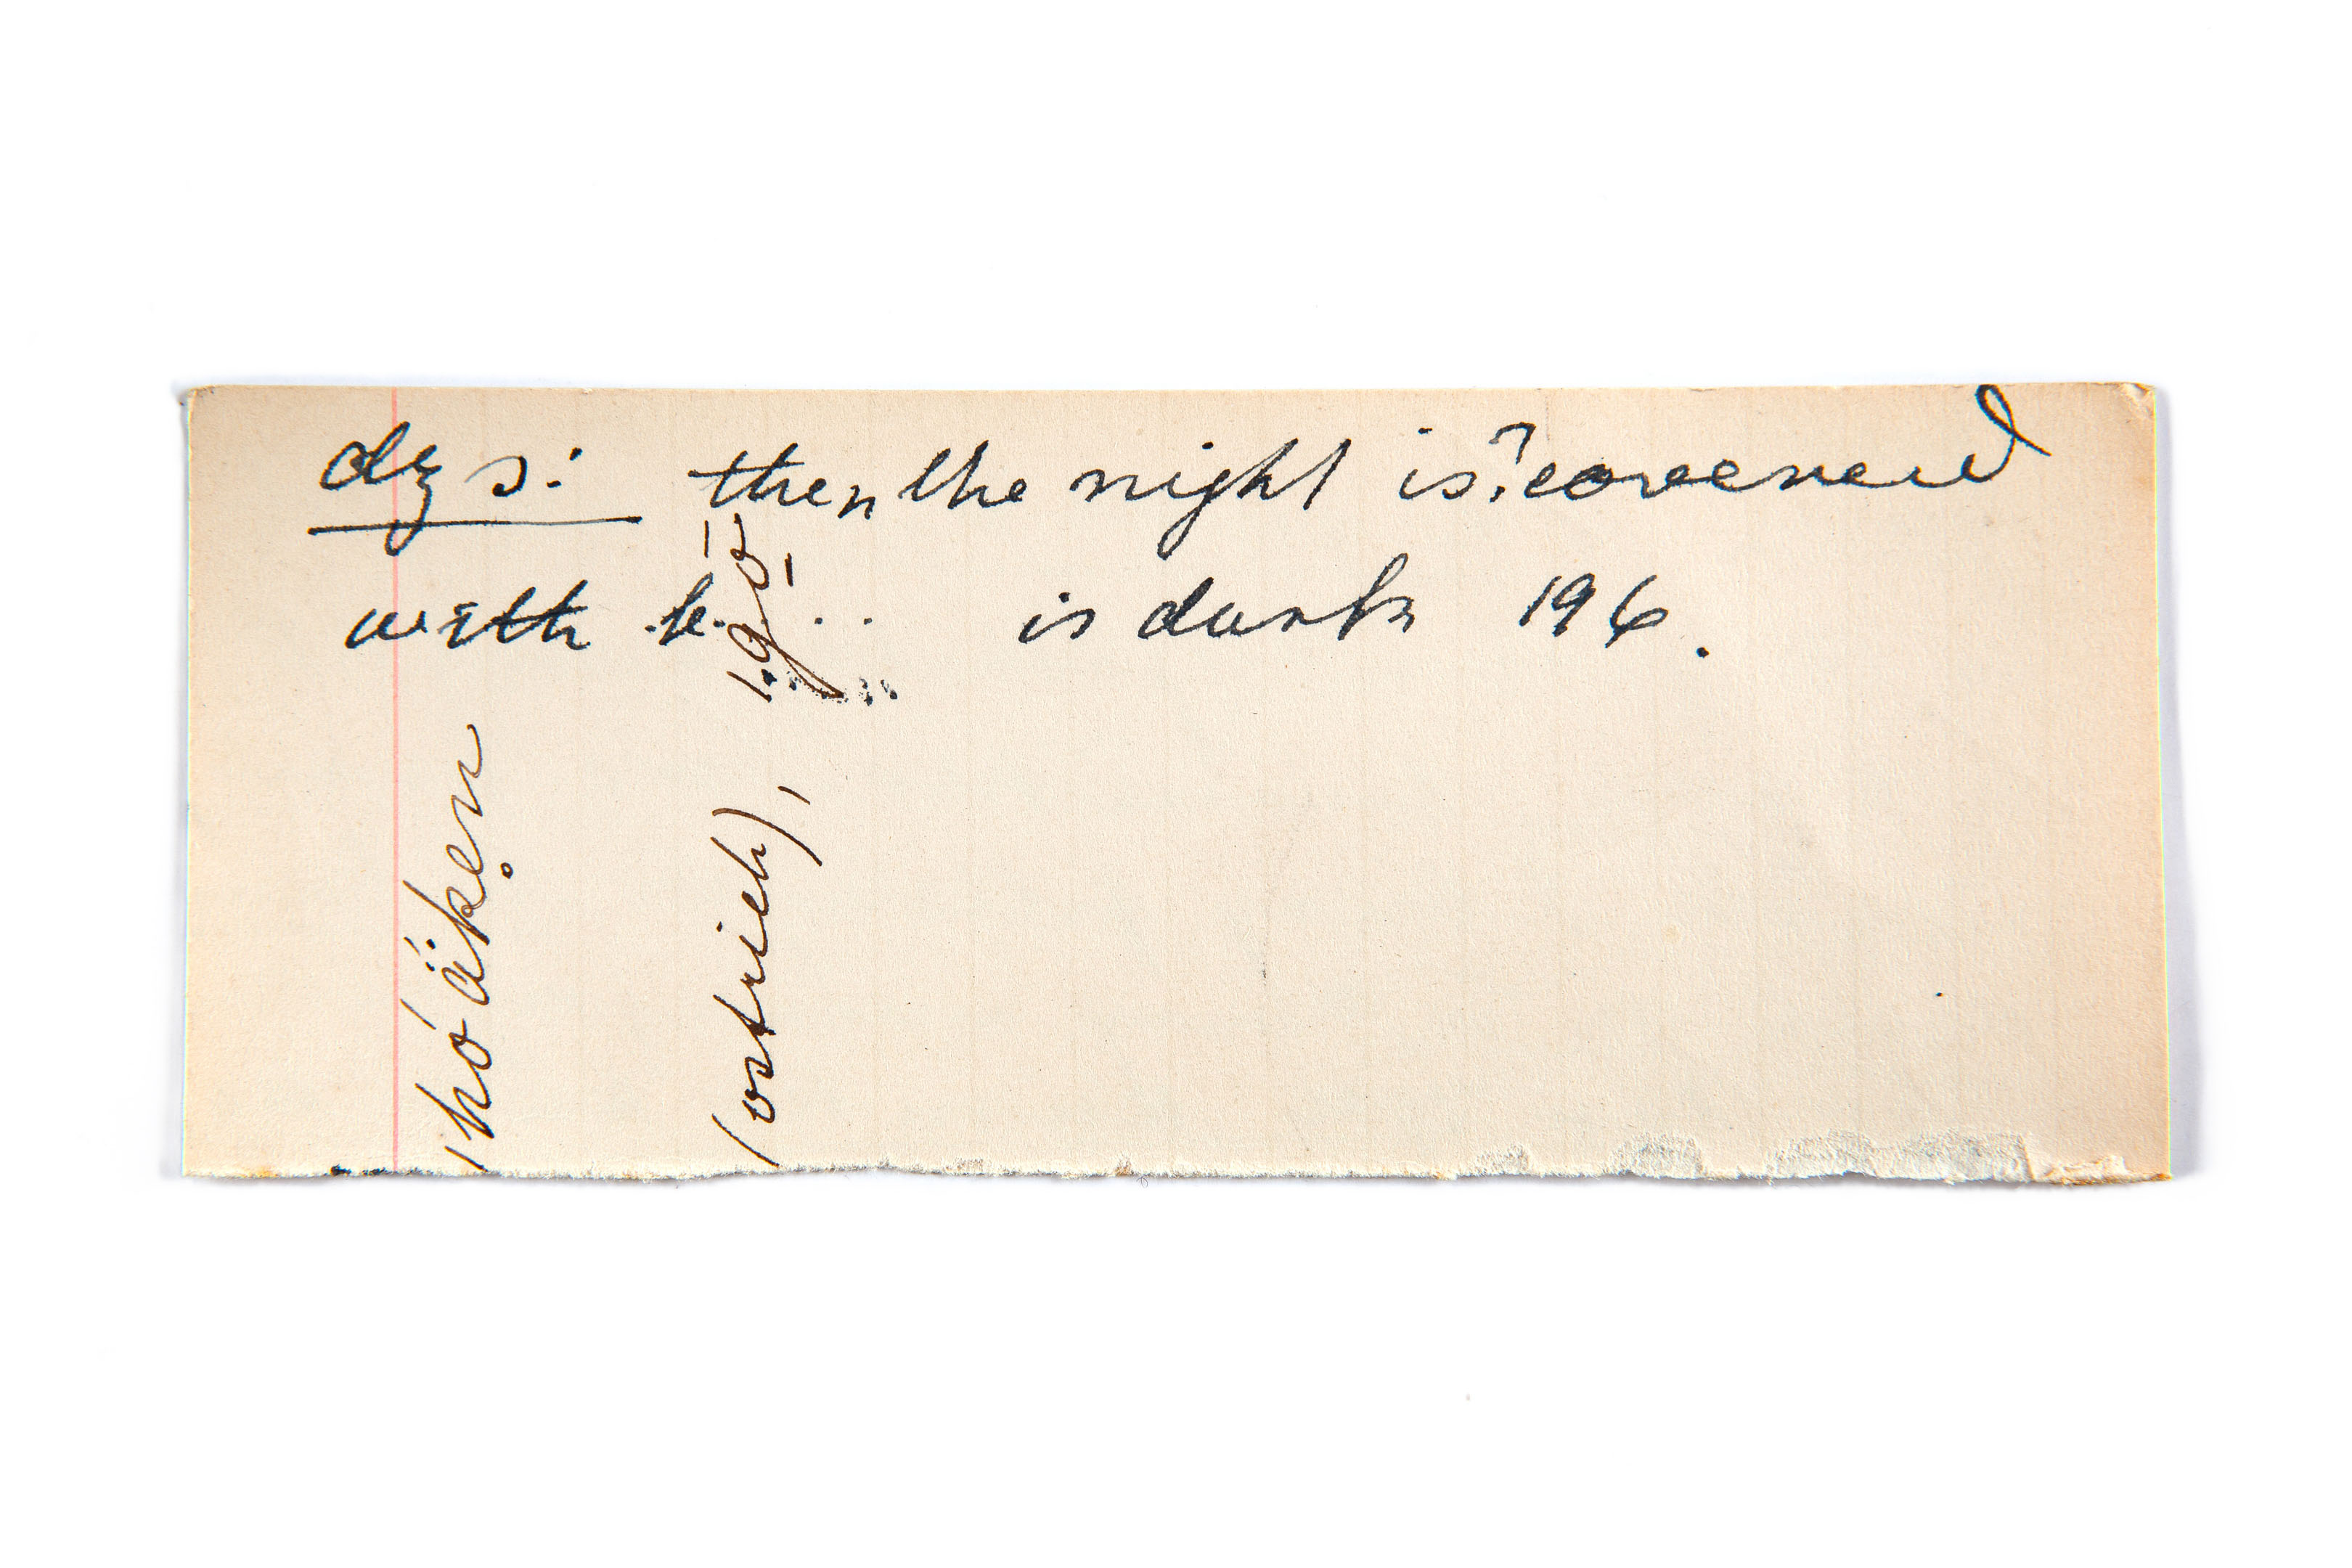 dys: then the night is ? covered
with k. .. is dark 196.
hó ä́ken
(ostrich),